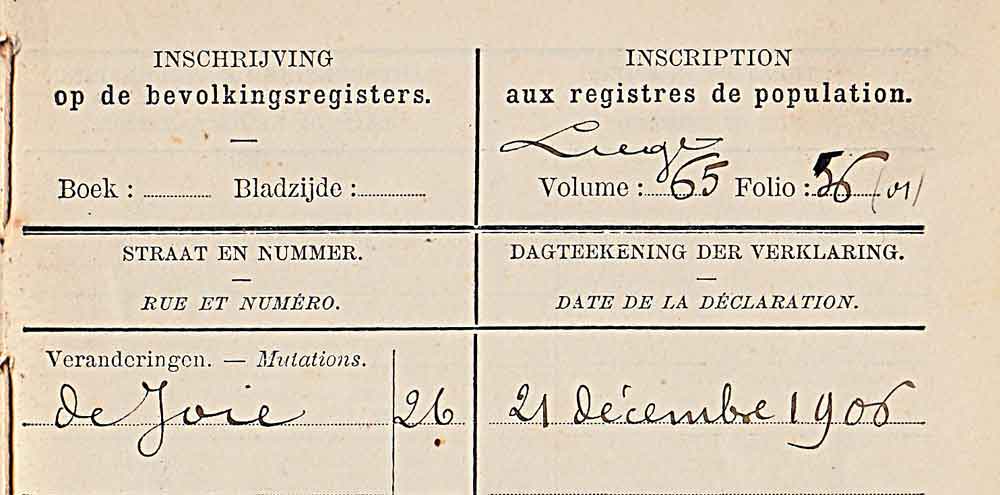 INSCHRIJVING
op de bevolkingsregisters.
Boek : Bladzijde :
INSCRIPTION
aux registres de population.
Liege
Volume : 65 Folio : 56 (01)
STRAAT EN NUMMER.
RUE ET NUMÉRO.
DAGTEEKENING DER VERKLARING.
DATE DE LA DÉCLARATION.
Veranderingen. — Mutations.
de Joie 26
21 décembre 1906